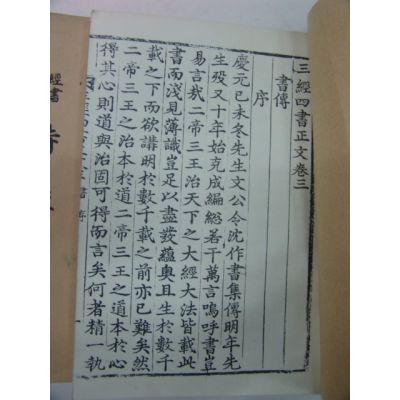 三經四書正文卷三
書傳
序
慶元已未冬先生文公令沈作書集傳明年先
生歿又十年始克成編総若干萬言嗚呼書豈
易言哉二帝三王治天下之大經大法皆載此
書而淺見薄識豈足以盡發蘊奧且生於數千
載之下而欲講明於數千載之前亦已難矣然
二帝三王之治本於道二帝三王之道本於心
得其心則道與治固可得而言矣何者精一執
經書